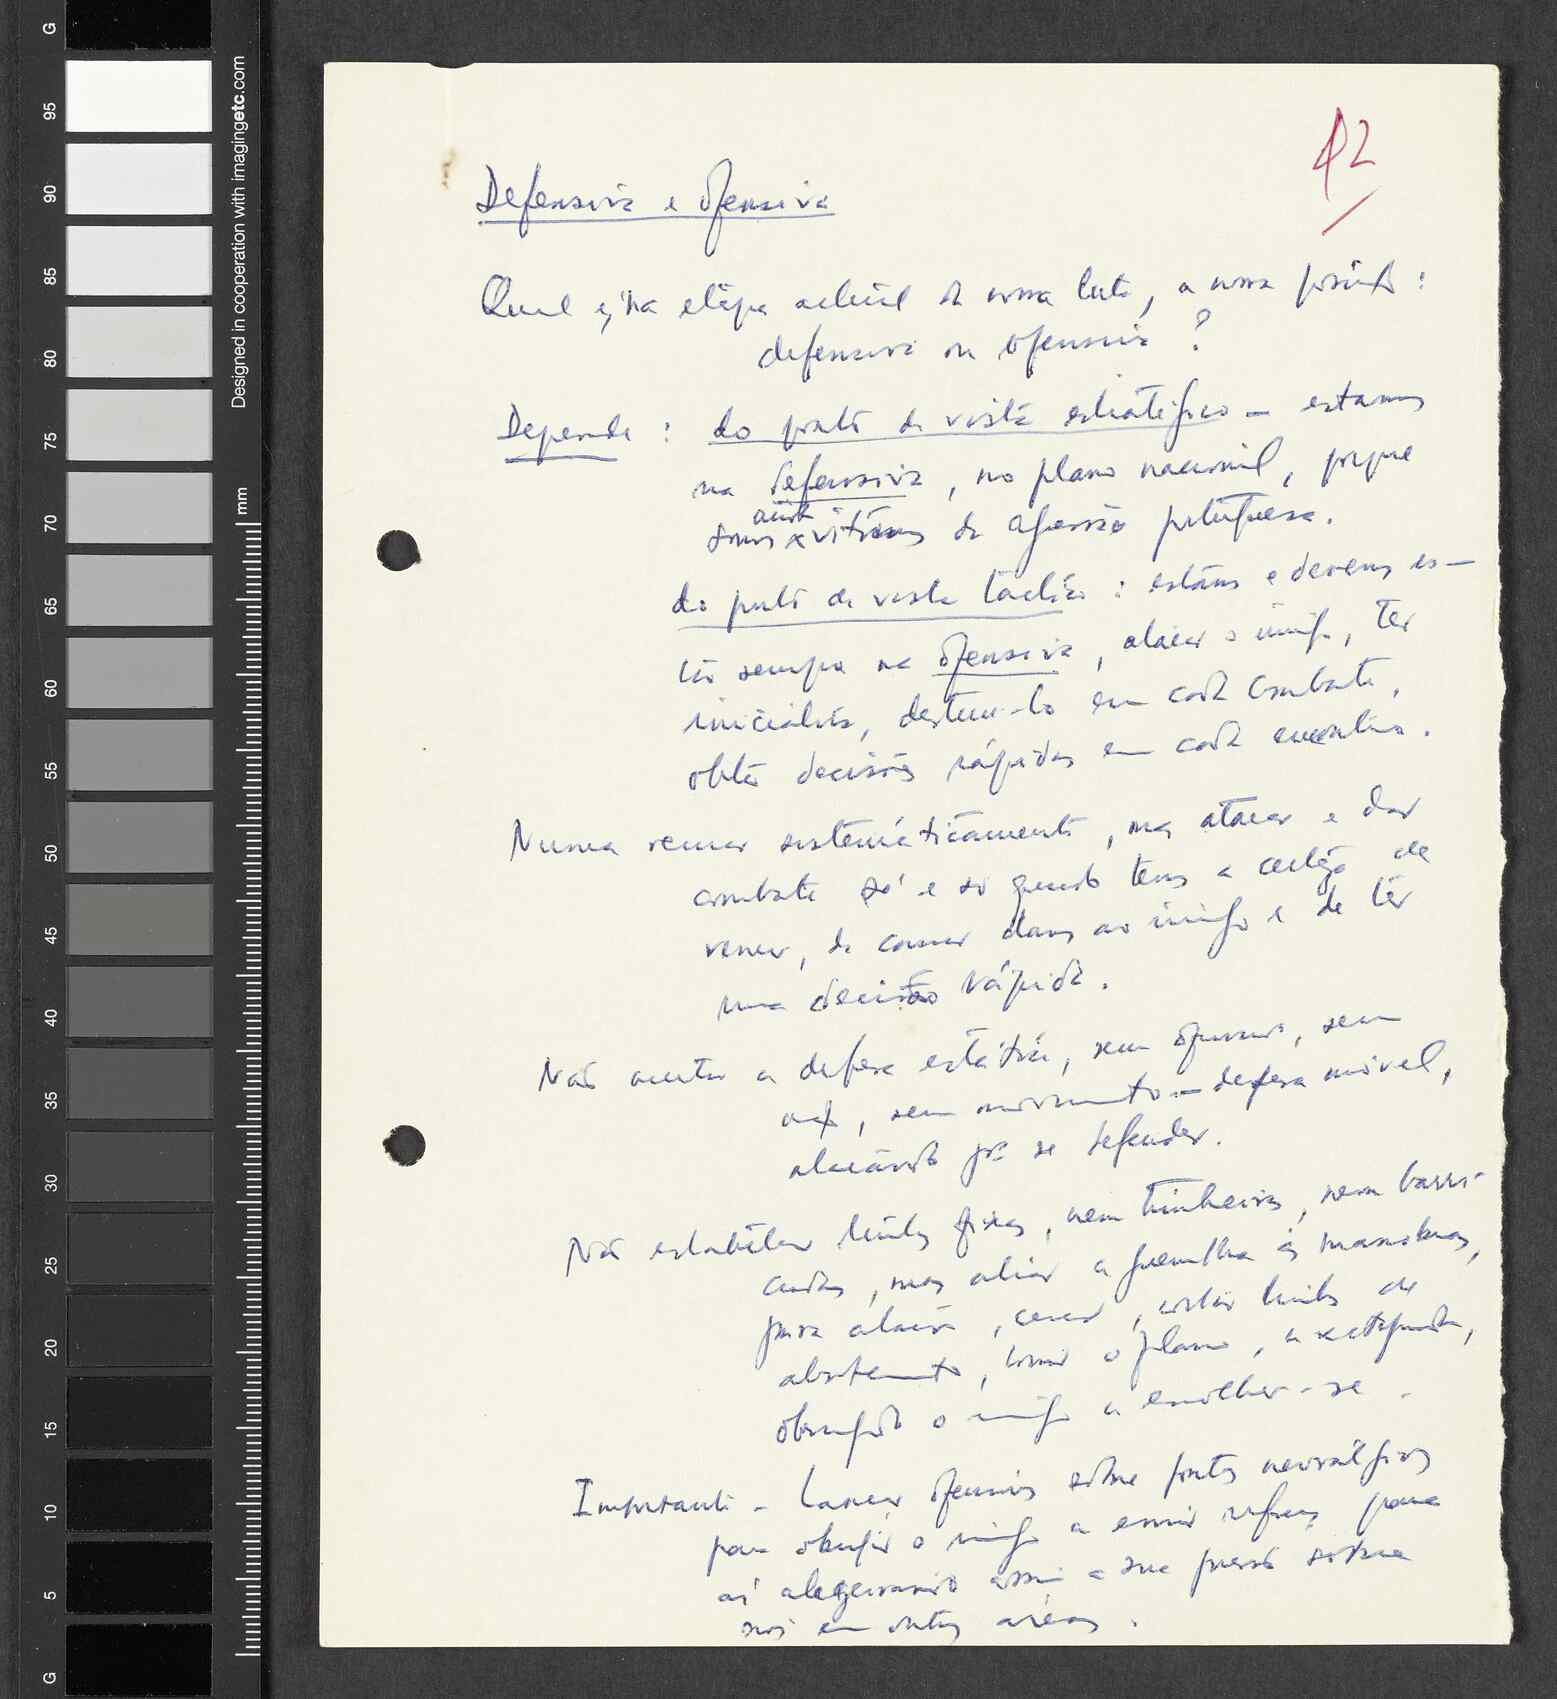 G
95
90
85
80
75
70
65
60
55
50
45
40
35
30
25
20
15
10
5
G
Designed in cooperation with imagingetc.com
mm
42
Defensiva e ofensiva
Qual é, na etapa actual da nossa luta, a nossa posição:
defensiva ou ofensiva?
Depende: do ponto de vista estratégico — estamos
na defensiva, no plano nacional, porque
ainda
somos x vítimas da agressão portuguesa.
do ponto de vista táctico: estamos e devemos es-
tar sempre na ofensiva, atacar o inimigo, ter
iniciativa, destruí-lo em cada combate,
obter decisões rápidas em cada encontro.
Nunca recuar sistemáticamente, mas atacar e dar
combate só e só quando temos a certeza de
vencer, de causar danos ao inimigo e de ter
uma decisão rápida.
Não aceitar a defesa estática, sem, sem
acção, sem movimento — defesa móvel,
atacando para se defender.
Não estabelecer linhas fixas, nem trinheiras, nem barri-
cadas, mas aliar a guerrilha às manobras,
para atacar, cercar, cortar linhas de
abastecimento, tomar o plano, a rectaguarda,
obrigando o inimigo a encolher-se.
Importante — Lançar ofensivas sobre pontos nevrálgicos
para obrigar o inimigo a enviar reforços para
aí aligeirando assim a sua pressão sobre
nós em outras áreas.